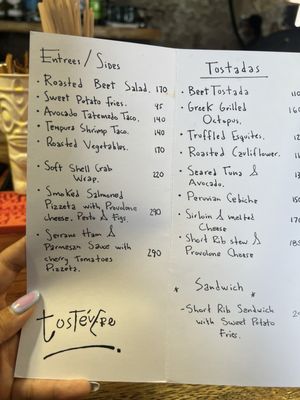 Entrees / Sides
· Roasted Beet Salad. 170
· Sweet Potato fries. 95
· Avocado Tatemado Taco. 140
· Tempura Shrimp Taco. 140
· Roasted Vegetables. 170
· Soft Shell Crab
Wrap. 220
· Smoked Salmoned
Pizzeta with Provolone
cheese. Pesto & Figs. 290
· Serrano Ham &
Parmesan Sauce with
cherry Tomatoes
Pizzeta. 290
Tostadas
· Beet Tostada
· Greek Grilled
Octopus.
· Truffled Esquites.
· Roasted Cauliflower.
· Seared Tuna &
Avocado.
· Peruvian Cebiche
· Sirloin & melted
Cheese
· Short Rib stew &
Provolone Cheese
* Sandwich *
- Short Rib Sandwich
with Sweet Potato
Fries.